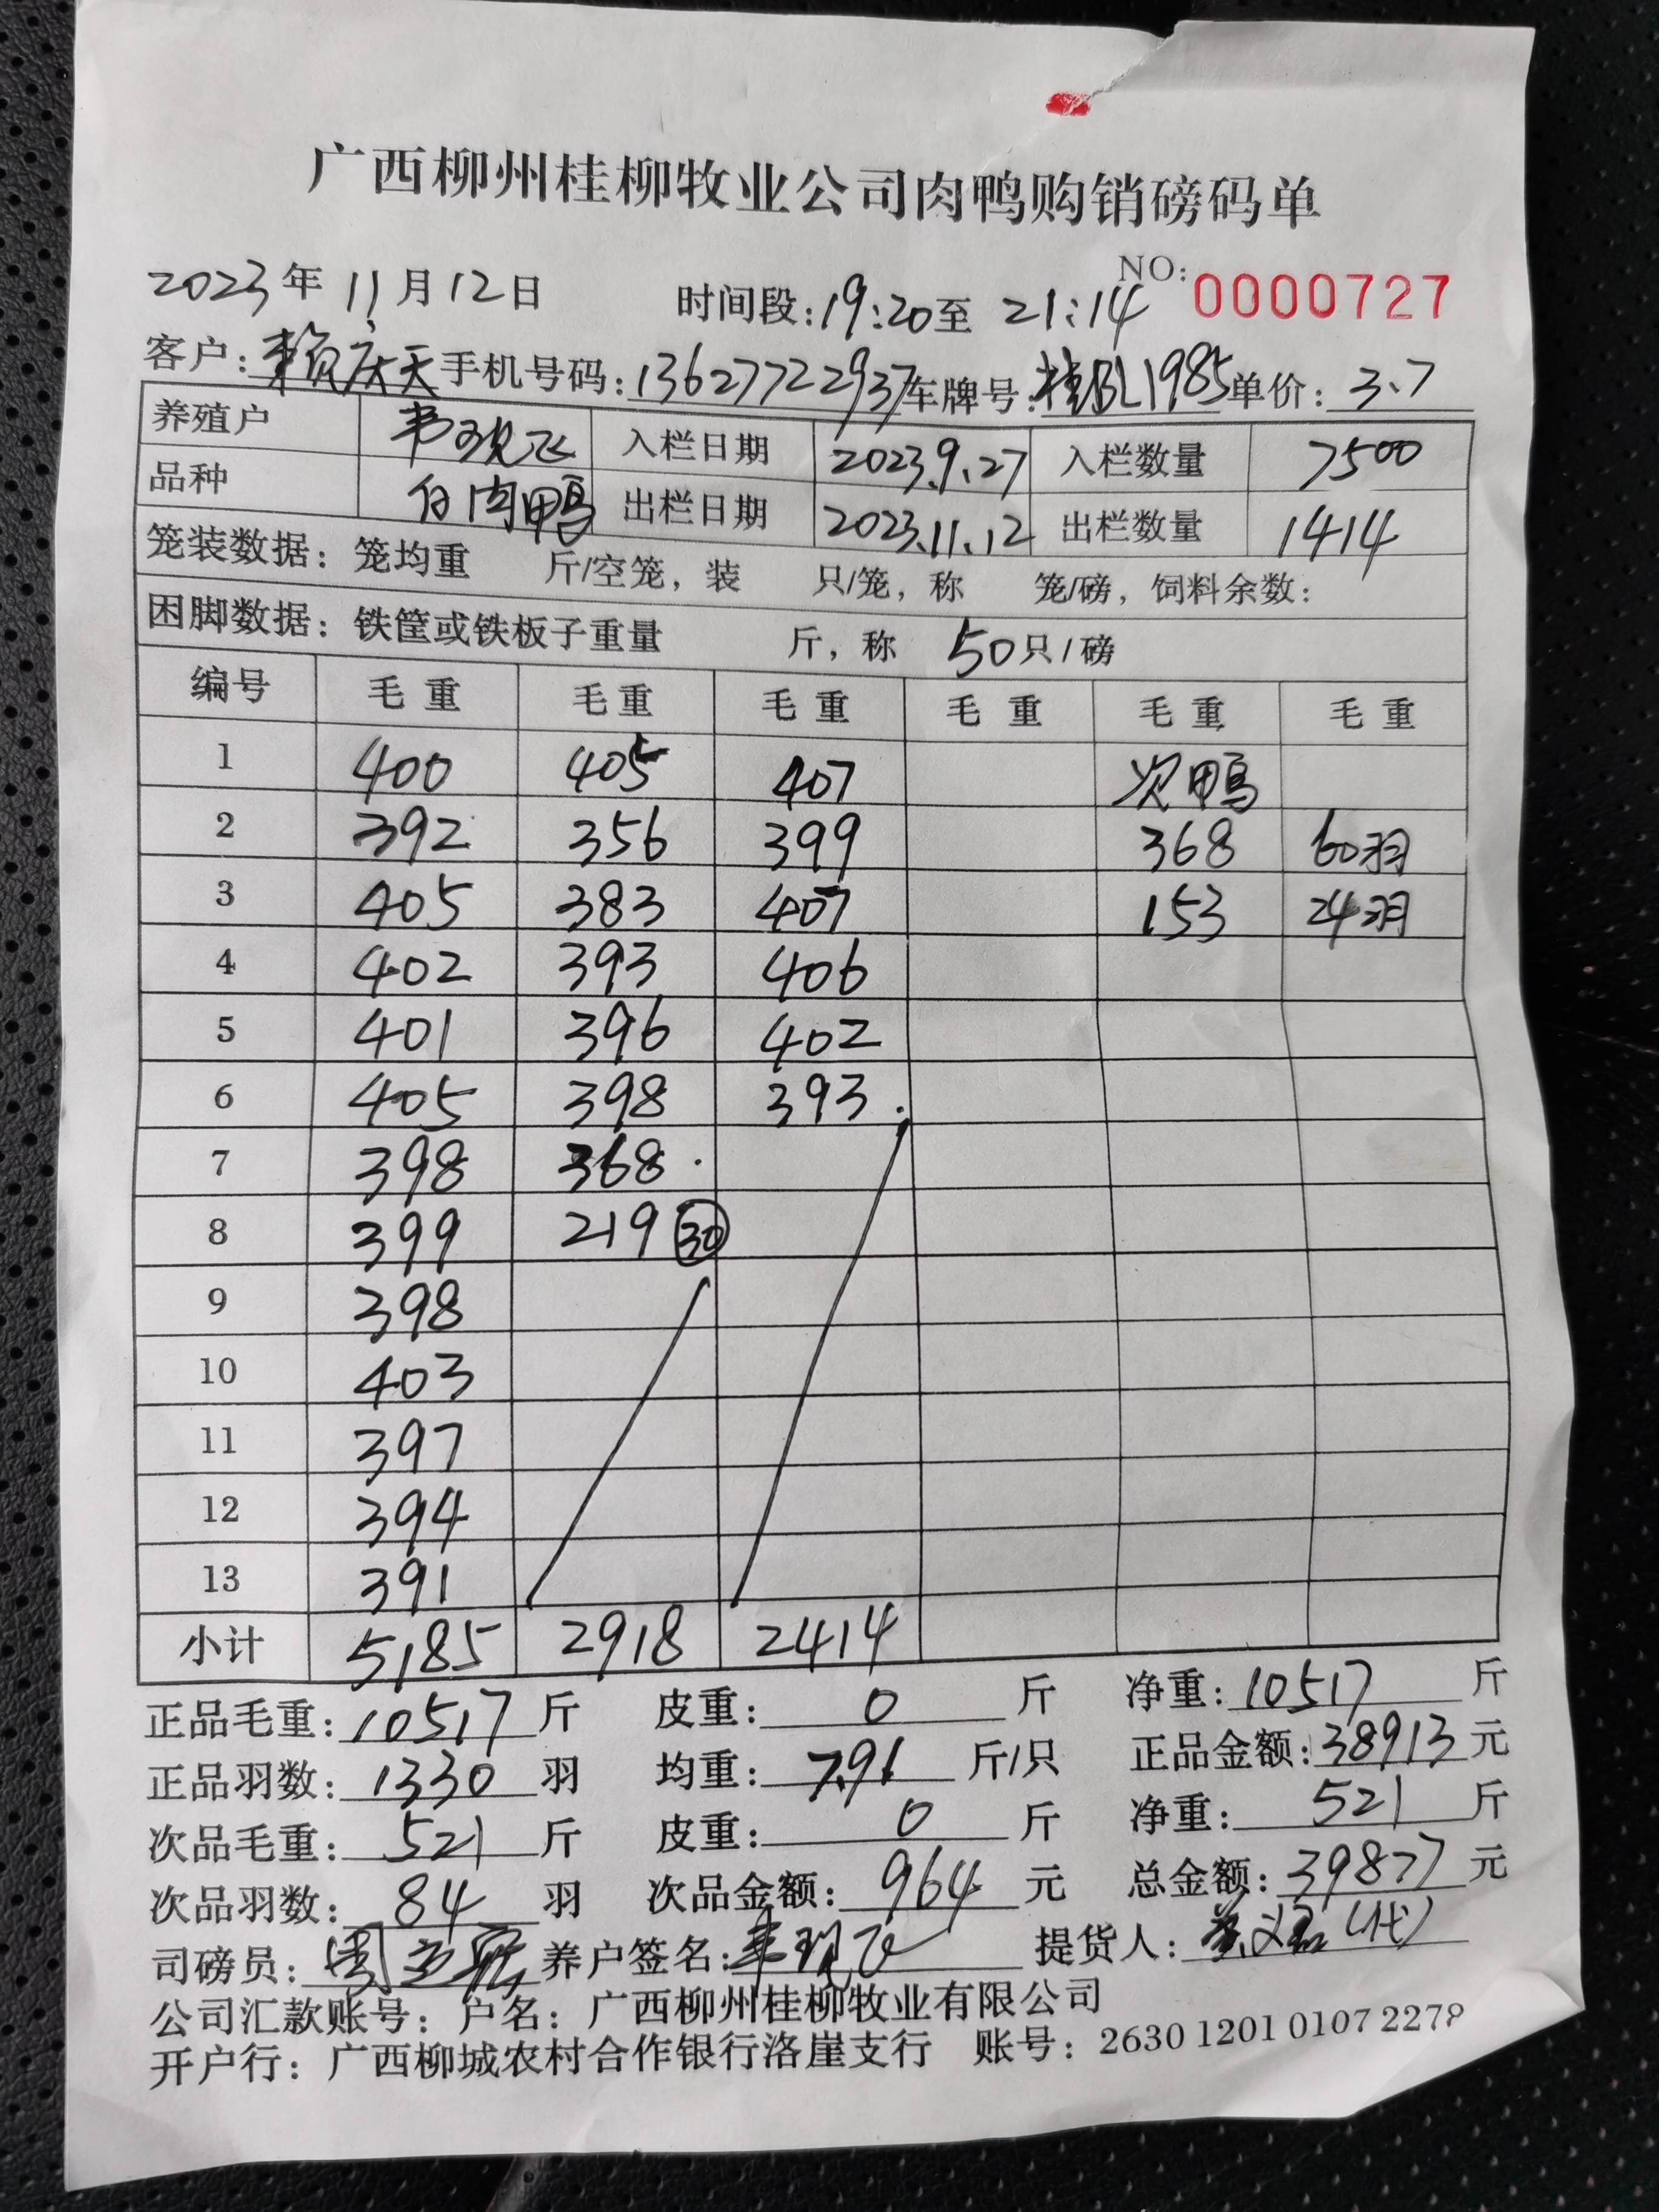 广西柳州桂柳牧业公司肉鸭购销磅码单
NO: 0000727
2023年 11月12日 时间段:19:20至 21:14
客户: 赖庆天 手机号码:13627722937 车牌号: 桂BL1985 单价: 3.7
养殖户 韦 飞 入栏日期 2023.9.27 入栏数量 7500
品种 白肉鸭 出栏日期 2023.11.12 出栏数量 1414
笼装数据: 笼均重 斤/空笼, 装 只/笼, 称 笼/磅, 饲料余数:
困脚数据: 铁筐或铁板子重量 斤, 称 50只/磅
编号 毛重 毛重 毛重 毛重 毛重 毛重
1 400 405 407 次鸭
2 392 356 399 368 60羽
3 405 383 407 153 24羽
4 402 393 406
5 401 396 402
6 405 398 393.
7 398 368.
8 399 219 30
9 398
10 403
11 397
12 394
13 391
小计 5185 2918 2414
正品毛重: 10517 斤 皮重: 0 斤 净重: 10517 斤
正品羽数: 1330 羽 均重: 7.91 斤/只 正品金额: 38913 元
次品毛重: 521 斤 皮重: 0 斤 净重: 521 斤
次品羽数: 84 羽 次品金额: 964 元 总金额: 39877 元
司磅员: 周 养户签名: 飞 提货人: (代)
公司汇款账号: 户名: 广西柳州桂柳牧业有限公司
开户行: 广西柳城农村合作银行洛崖支行 账号: 2630 1201 0107 2278